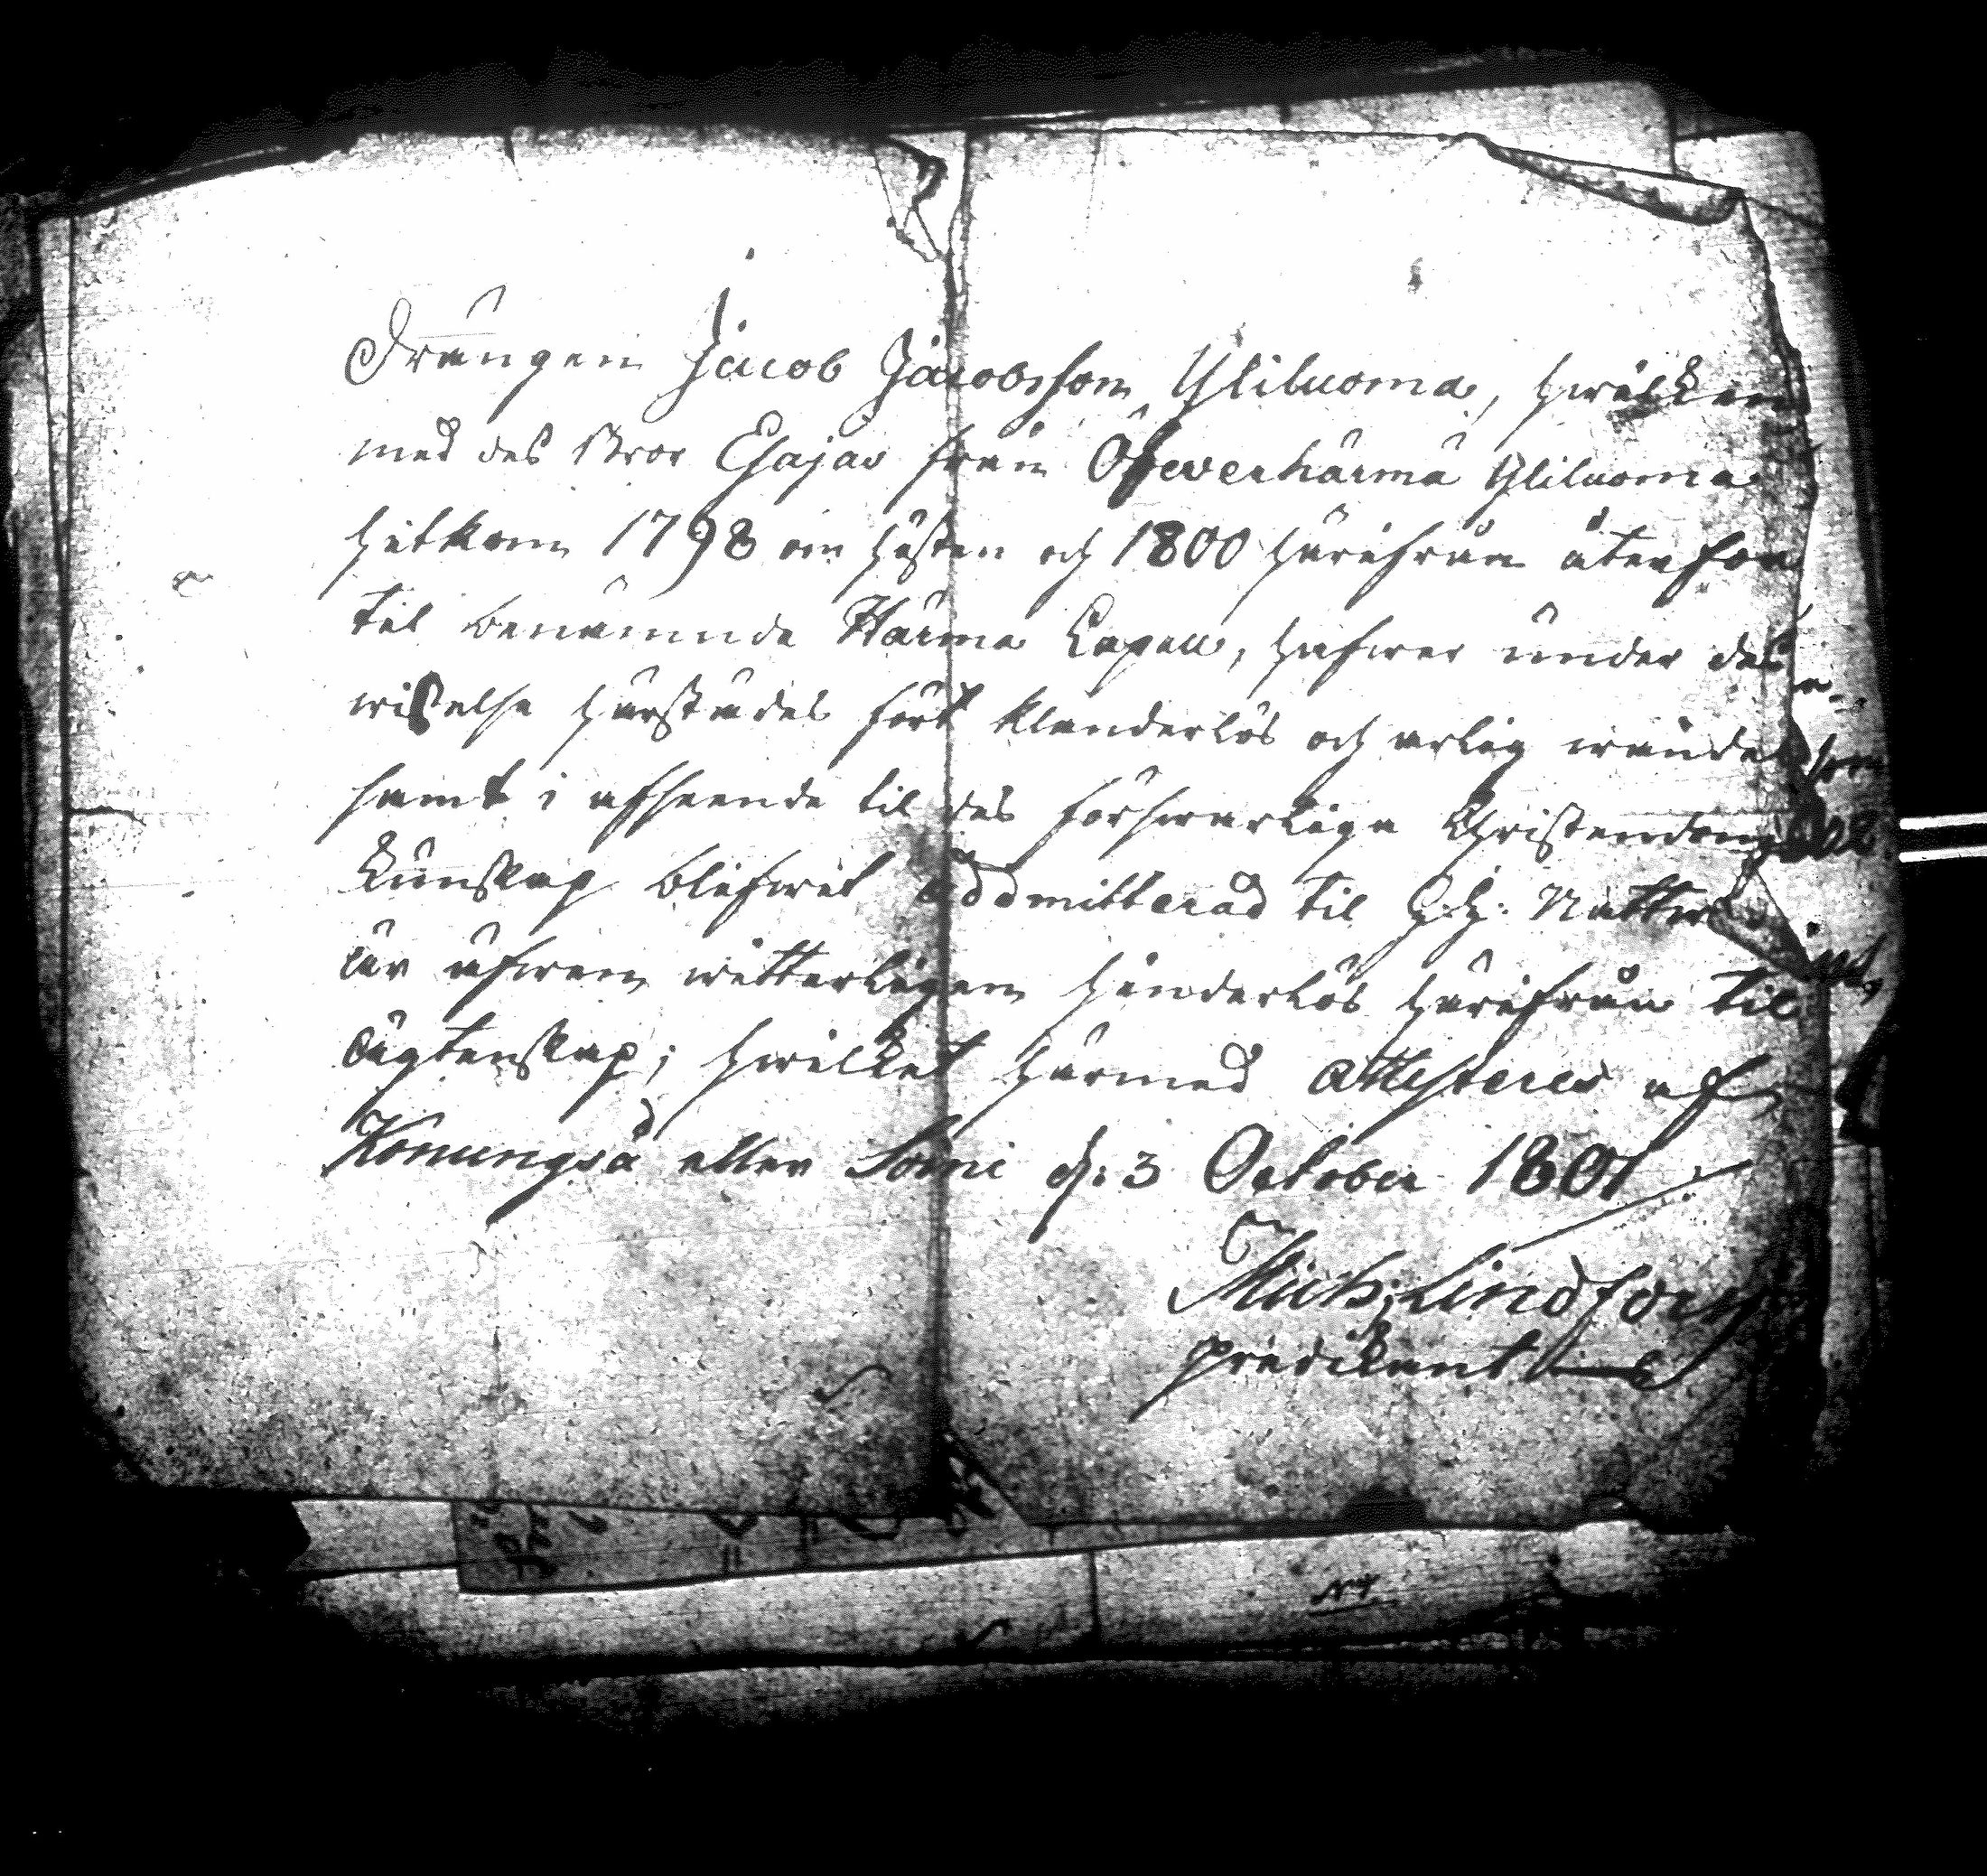 Drängen Jacob Jacobsson Yliluoma, hwilken
med des Bror Esajas från Öfwerhärmä Yliluoma
hitkom 1798 om hösten och 1800 härifrån återfor
til benämnde Härmä Capell, hafwer under des
wistelse härstädes fört klanderlös och ärlig wandel
samt i afseende til des förswarliga Christendoms
kunskap blifwit addmitterad til H. H. Nattw
är äfwen witterligen hinderlös härifrån til
ägtenskap; hwilket härmed attesteres af
Konungså eller Soini d: 3 October 1801
Mich: Lindfors
prädikant